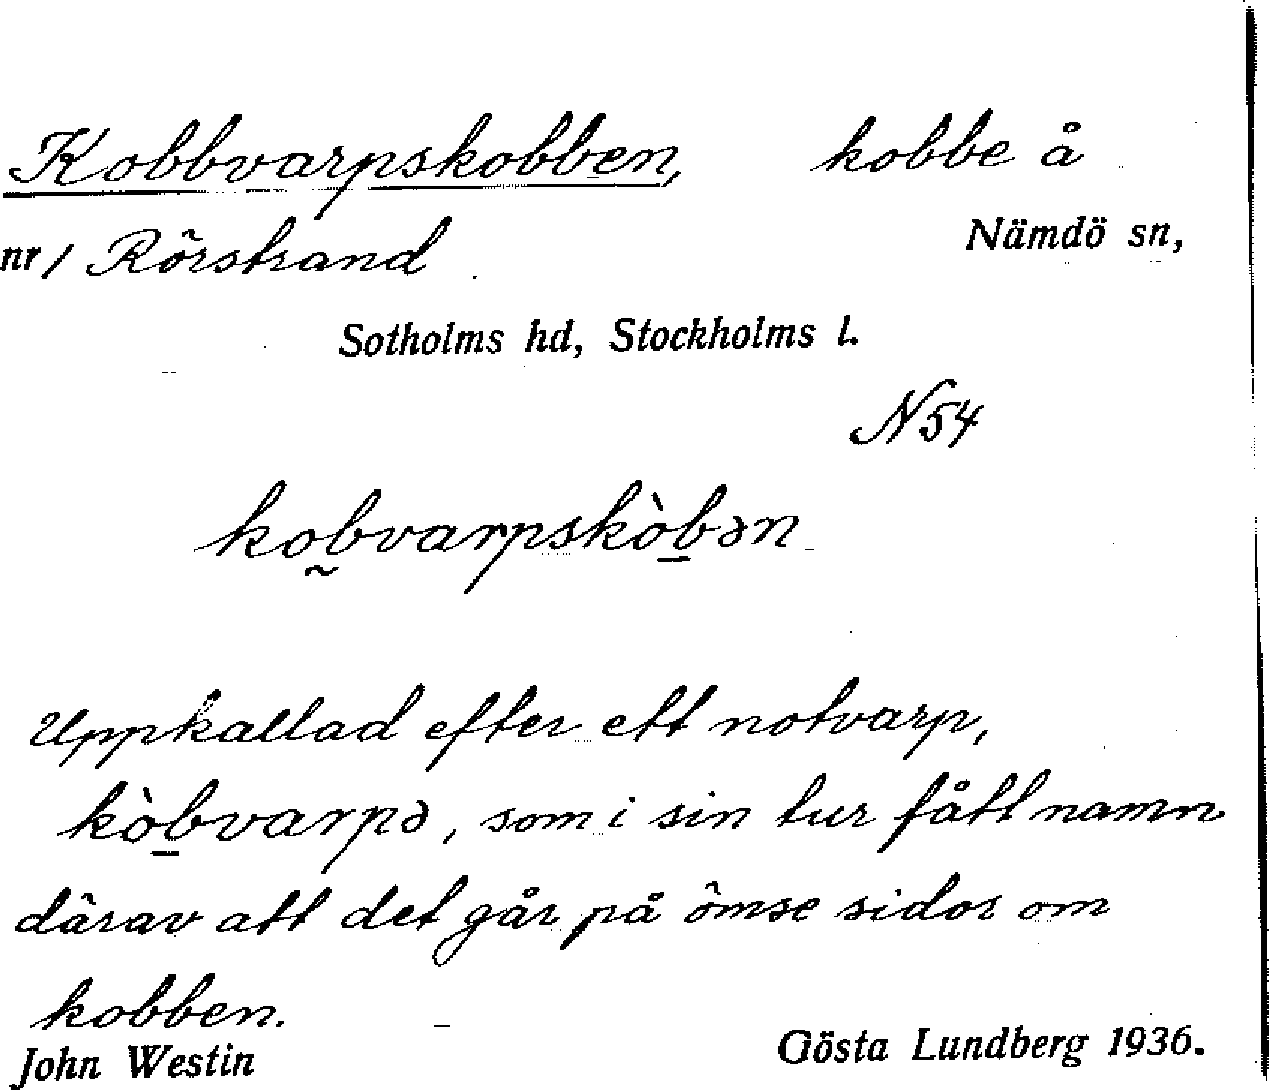 Kobbvarpskobben, kobbe å
nr 1 Rörstrand Nämdö sn,
Sotholms hd, Stockholms l.
N54
ko̰bvarpskòb̲ən
Uppkallad efter ett notvarp,
kòb̲varpə, som i sin tur fått namn
därav att det går på ömse sidor om
kobben.
John Westin Gösta Lundberg 1936.